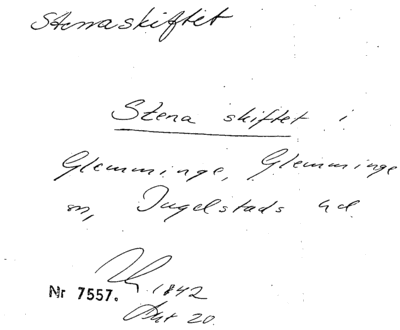 Stenaskiftet
Stena skiftet i
Glemminge, Glemminge
sn, Ingelstads hd
1842
Nr 7557.
20.